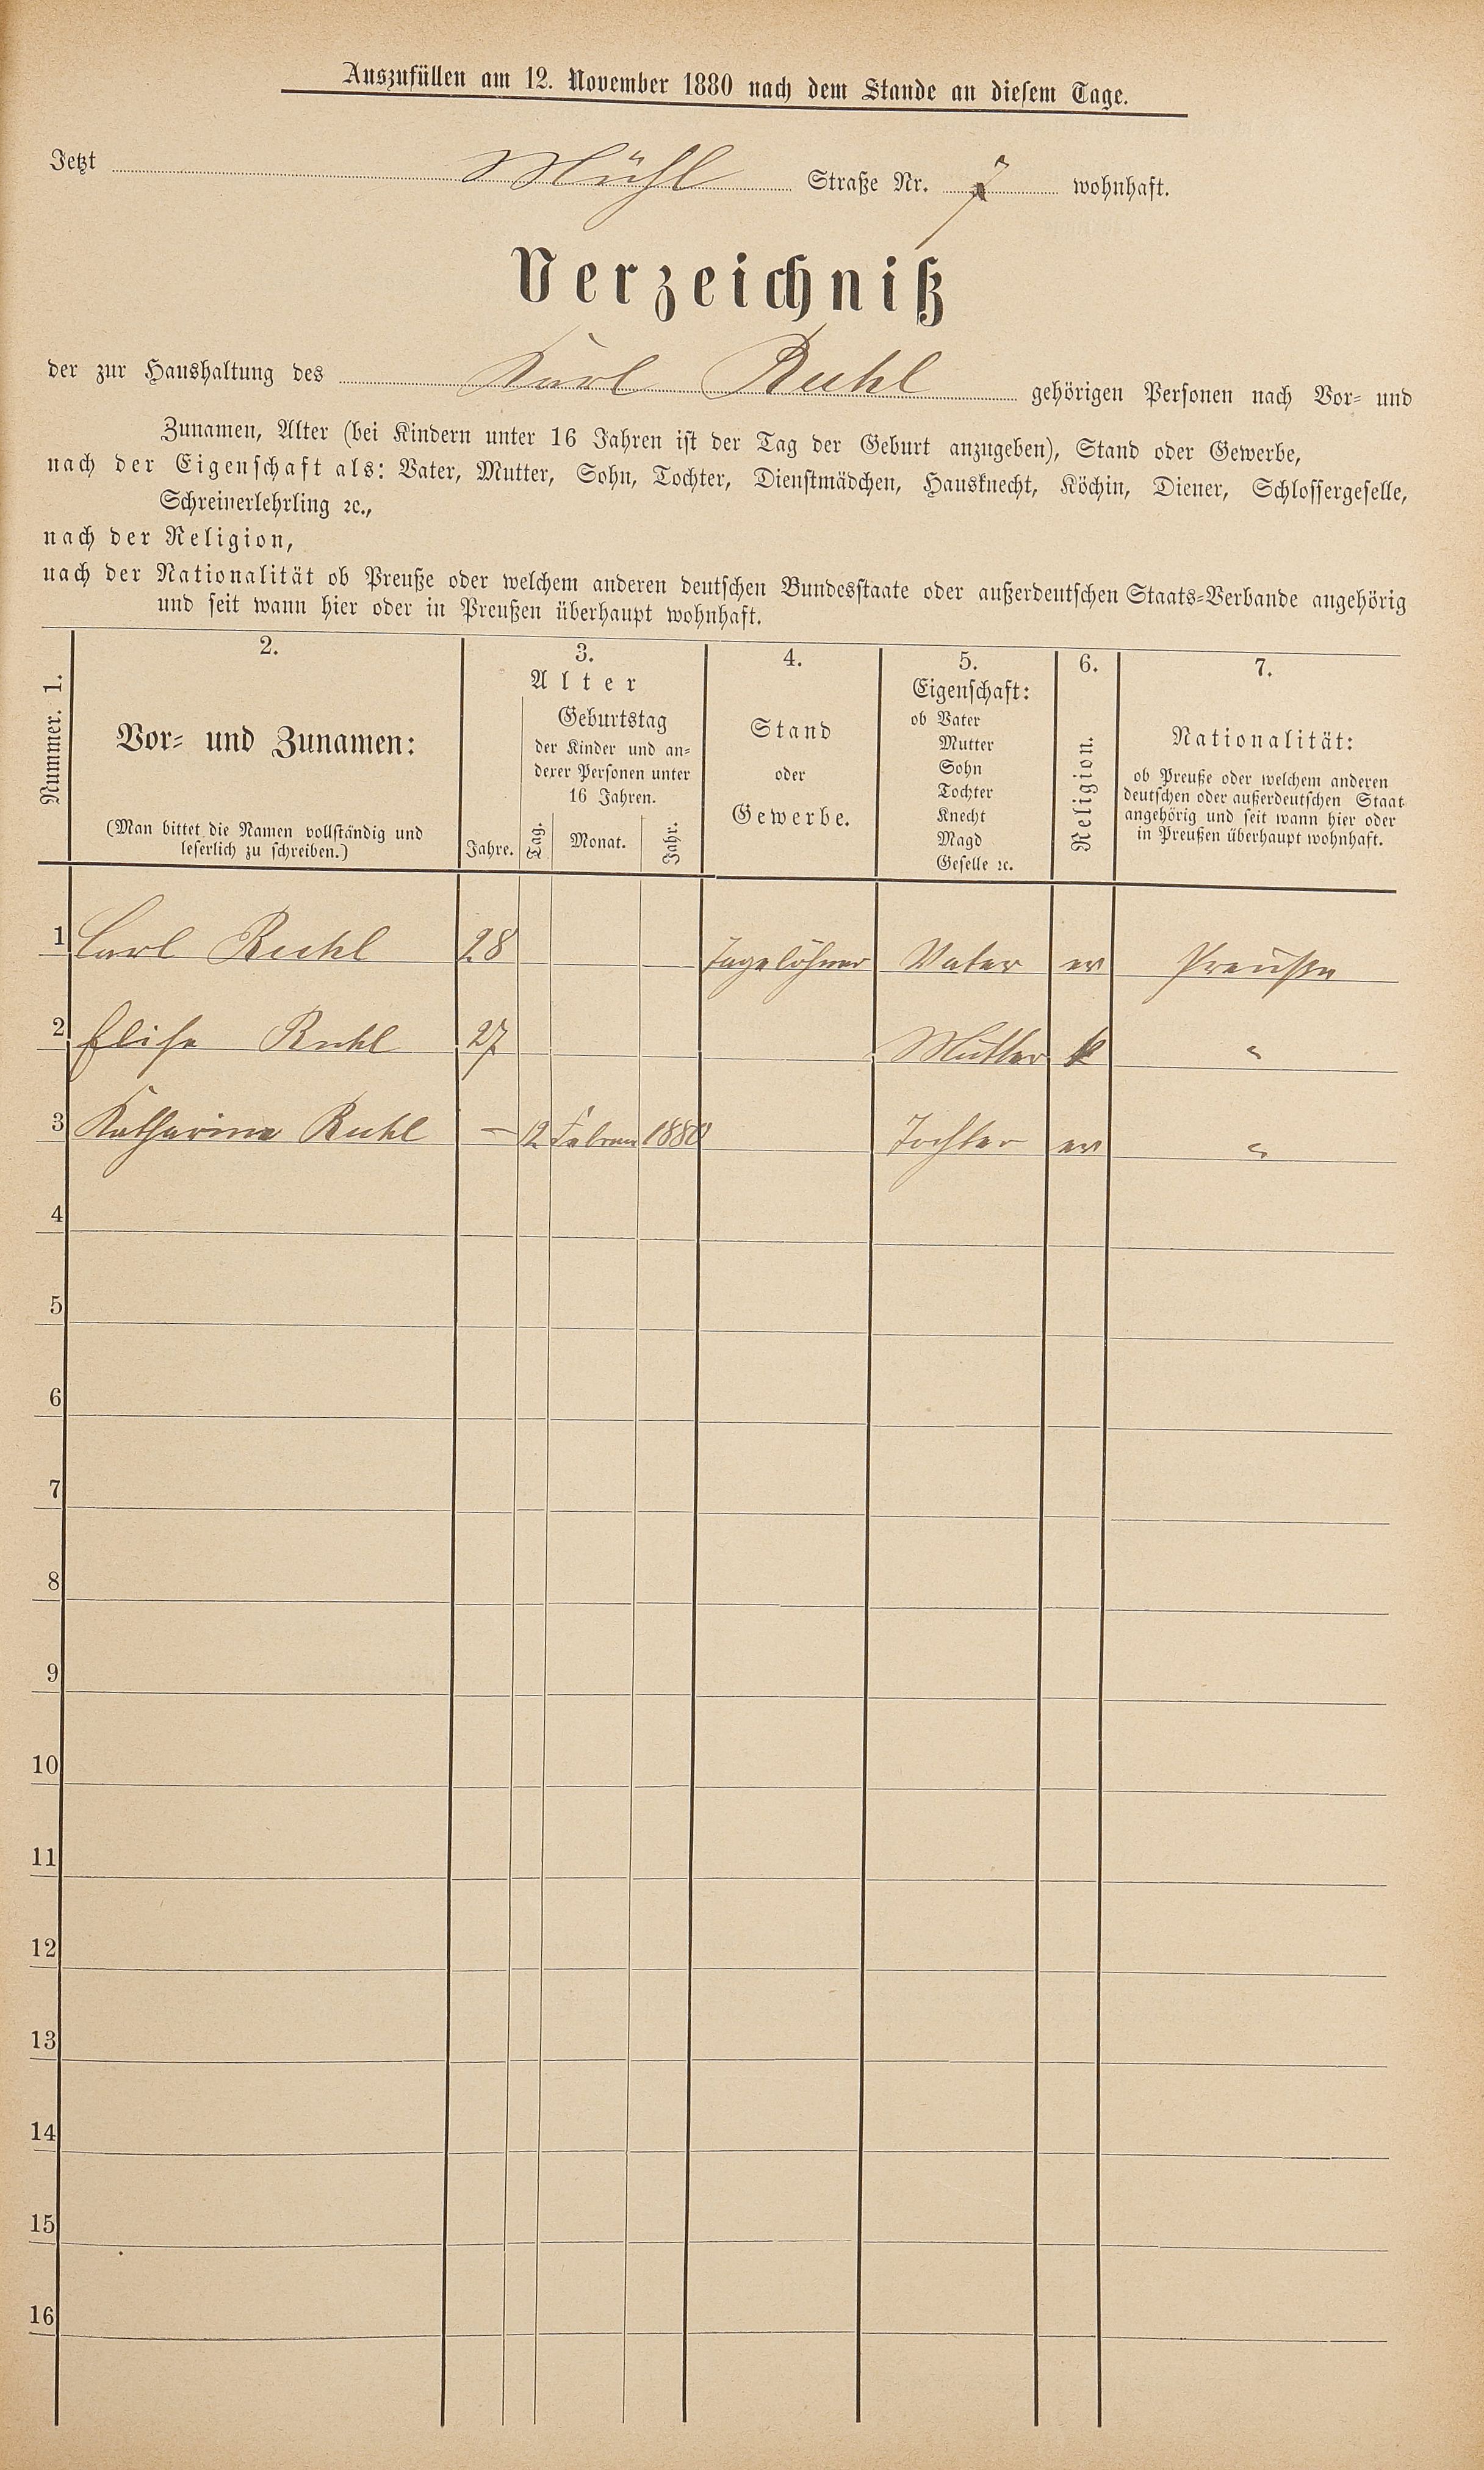 Auszufüllen am 12. November 1880 nach dem Stande an diesem Tage.
Jetzt Mühl Straße Nr. 7 wohnhaft.
Verzeichniß
der zur Haushaltung des Karl Ruhl gehörigen Personen nach Vor- und
Zunamen, Alter (bei Kindern unter 16 Jahren ist der Tag der Geburt anzugeben), Stand oder Gewerbe,
nach der Eigenschaft als: Vater, Mutter, Sohn, Tochter, Dienstmädchen, Hausknecht, Köchin, Diener, Schlossergeselle,
Schreinerlehrling ꝛc.,
nach der Religion,
nach der Nationalität ob Preuße oder welchem anderen deutschen Bundesstaate oder außerdeutschen Staats-Verbande angehörig
und seit wann hier oder in Preußen überhaupt wohnhaft.
Nummer. 1.
2.
Vor- und Zunamen:
(Man bittet die Namen vollständig und
leserlich zu schreiben.)
3.
Alter
Jahre.
Geburtstag
der Kinder und an-
derer Personen unter
16 Jahren.
Tag. Monat. Jahr.
4.
Stand
oder
Gewerbe.
5.
Eigenschaft:
ob Vater
Mutter
Sohn
Tochter
Knecht
Magd
Geselle ꝛc.
6.
Religion.
7.
Nationalität:
ob Preuße oder welchem anderen
deutschen oder außerdeutschen Staat
angehörig und seit wann hier oder
in Preußen überhaupt wohnhaft.
1 Carl Ruhl 28 Tagelöhner Vater ev Preuße
2 Elise Ruhl 27 Mutter k "
3 Katharina Ruhl — 12 Februar 1880 Tochter ev "
4
5
6
7
8
9
10
11
12
13
14
15
16